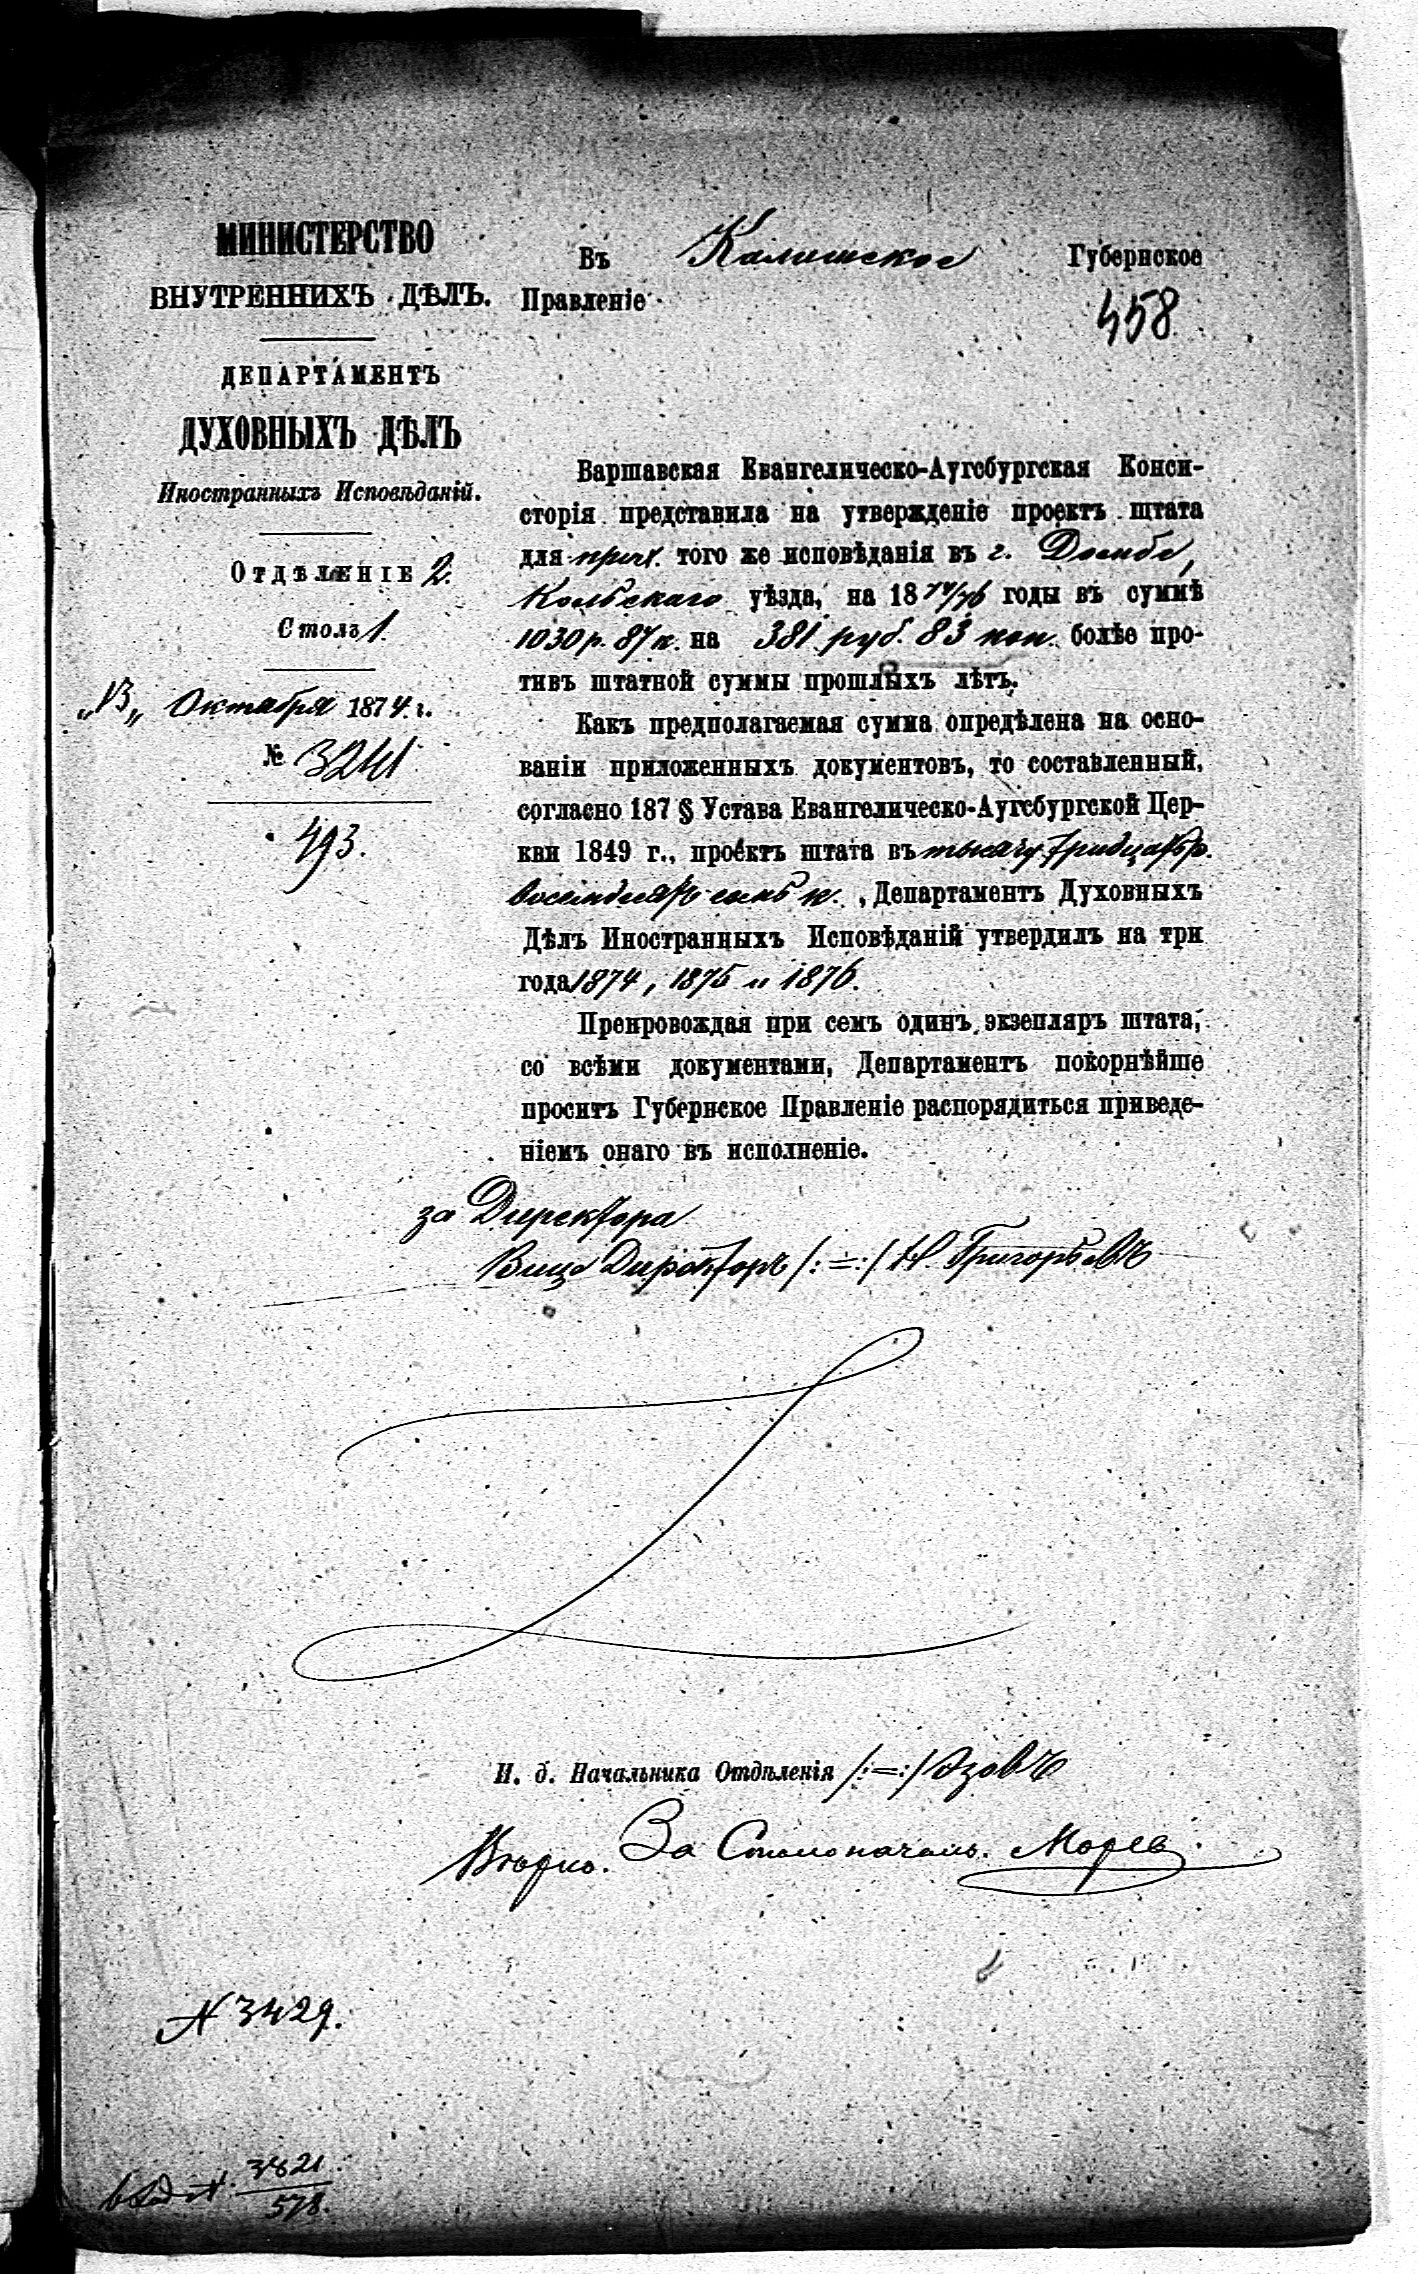 МИНИСТЕРСТВО
ВНУТРЕННИХЪ ДѢЛЪ.
ДЕПАРТАМЕНТЪ
ДУХОВНЫХЪ ДѢЛЪ
Иностранныхъ Исповѣданій.
Отдѣленіе 2.
Столъ 1.
„13„ Октября 1874 г.
№ 3241
493.
Въ Калишское Губернское
Правленіе
458
Варшавская Евангелическо-Аугсбургская Конси-
сторія представила на утвержденіе проектъ штата
для прих. того же исповѣданія въ г. Домбе,
Кольскаго уѣзда, на 1874/76 годы въ суммѣ
1030 р. 87 к. на 381 руб. 83 коп. болѣе про-
тивъ штатной суммы прошлыхъ лѣтъ.
Какъ предполагаемая сумма опредѣлена на осно-
ваніи приложенныхъ документовъ, то составленный,
согласно 187 § Устава Евангелическо-Аугсбургской Цер-
кви 1849 г., проектъ штата въ тысячу тридцать р.
восемьдесятъ семь к., Департаментъ Духовныхъ
Дѣлъ Иностранныхъ Исповѣданій утвердилъ на три
года 1874, 1875 и 1876.
Препровождая при семъ одинъ экзепляръ штата,
со всѣми документами, Департаментъ покорнѣйше
проситъ Губернское Правленіе распорядиться приведе-
ніемъ онаго въ исполненіе.
за Директора
Вице Директоръ /:=:/ Н. Григорьевъ
И. д. Начальника Отдѣленія /:=:/ Азовъ
Вѣрно. За Столоначаль. Морев
№ 3429.
3821
578.